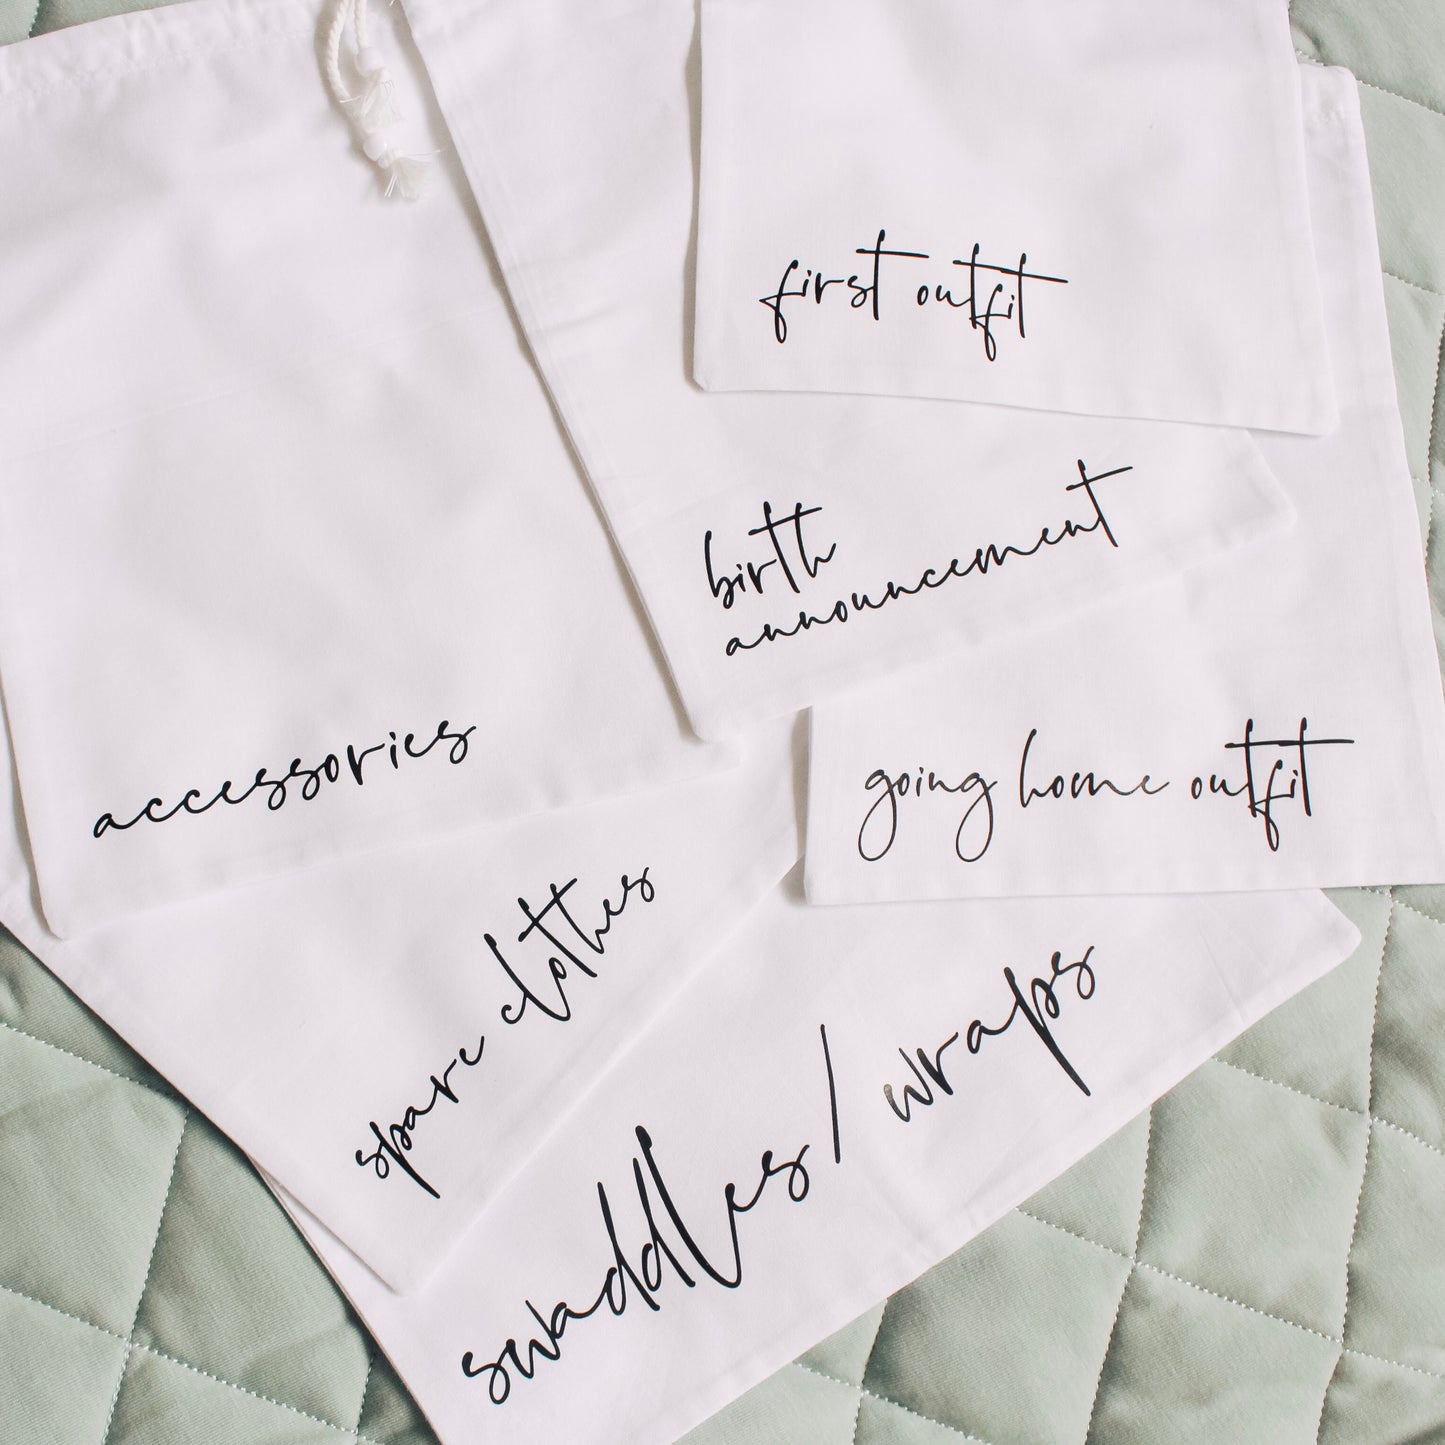 first outfit
birth
announcement
accessories
going home outfit
spare clothes
swaddles/wraps